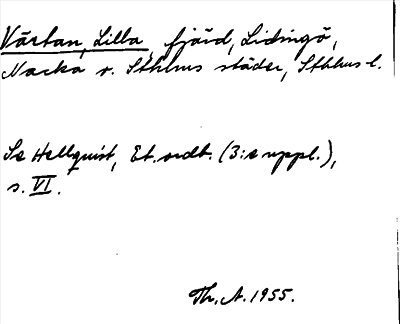 Värtan, Lilla, fjärd, Lidingö,
Nacka o. Sthlms städer, Sthlms l.
Se Hellquist, Et. ordb. (3:e uppl.),
s. VI.
Th. A. 1955.